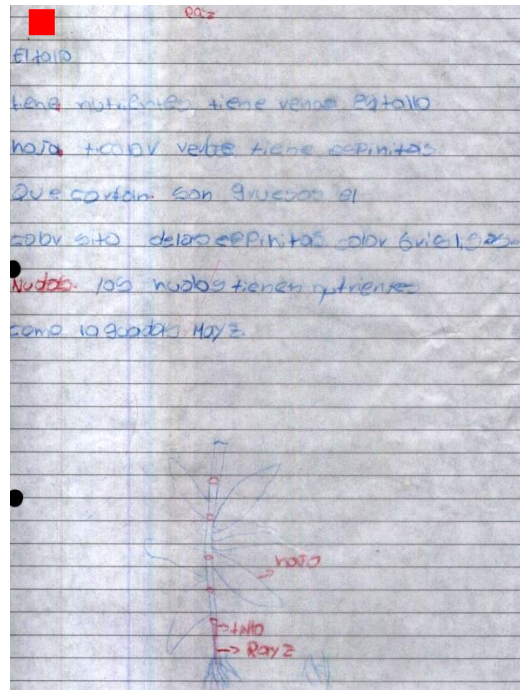 Raiz
El tallo
tiene nutrientes tiene venas el tallo
hoja color verde tiene espinitas
Que cortan son gruesos el
color sito de las espinitas color
Nudos. los nudos tienen nutrientes
como Mayz.
hoja
tallo
Rayz